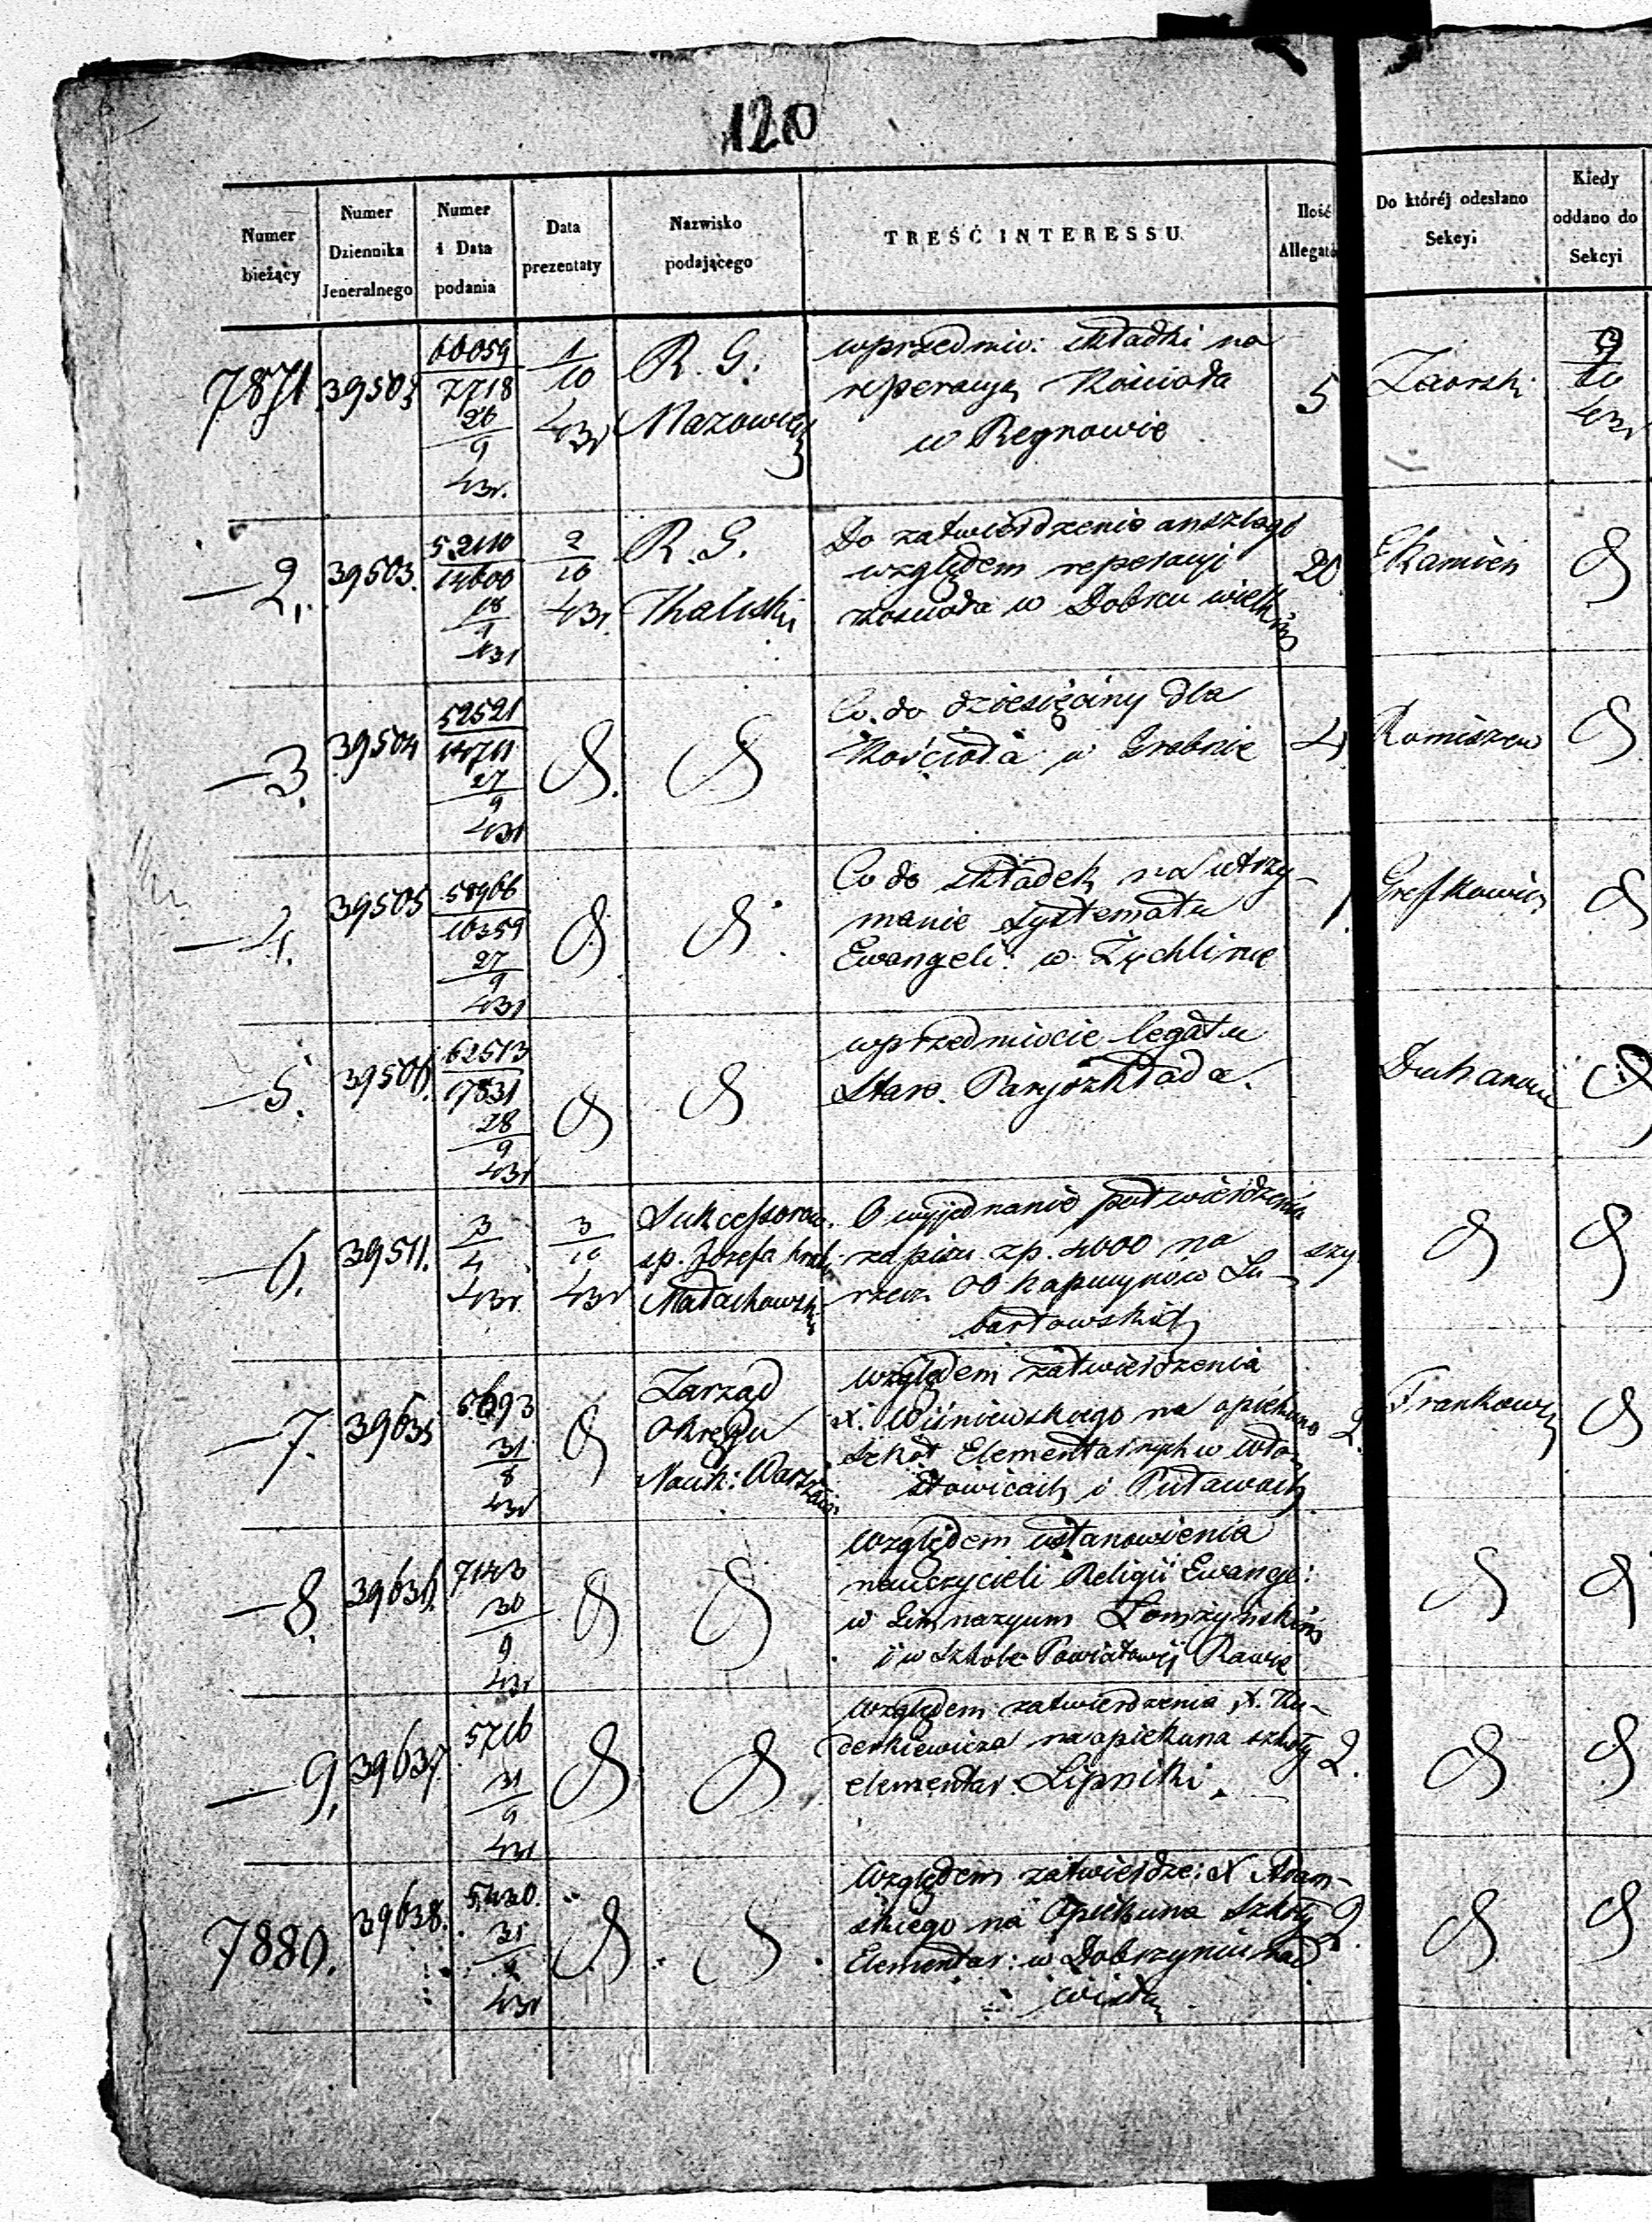 120
Numer bieżący
Numer Dziennika Jeneralnego
Numer i Data podania
Data prezentaty
Nazwisko podającego
TREŚĆ INTERESSU
Ilość Allegató
Do któréj odesłano Sekcyi
Kiedy oddano do Sekcyi
7871
66059
2718
26
9
43r.
1
10
43r
R. G.
Mazowiec
wprzedmio: składki na
reperacyą Kościoła
w Regnowie
5
Zaorsk:
9
10
43r
—2.
39503.
52110
14600
18
9
43r
2
10
43r.
R. G.
Kaliski
Do zatwierdzenia anszlagu
względem reperacyi
kościoła w Dobrcu wielkim
20
—3.
39504
52521
14711
27
9
43r
Co do dziesięciny dla
Kościoła w Grabnie
4
—4.
39505
58966
16359
27
9
43r
Co do składek na utrzy-
manie Systemata
Ewangeli: w Żychlinie
1.
—5.
39506.
62513
17831
28
9
43r
wprzedmiocie legatu
Staro.
—6.
39511.
3
4
43r
3
10
43r
Sukcessorow.
sp. Józefa hrab.
Małachowsk
O wyjednanie potwierdzenia
zapisu zp. 4000 na
rzecz OO Kapucynów Lu-
bartowskich
szy.
—7.
39635
5693
31
8
43r
Zarząd
Okręgu
Nauk: Warszaw
względem zatwierdzenia
X. Wiśniewskiego na opiekuna
Szkół Elementarnych w Wło-
stowicach i Puławach
2.
Frankowsk
—8.
39636.
7143
30
9
43r
Względem ustanowienia
nauczycieli Religii Ewange:
w Gimnazyum Łomżyńskim
i w Szkole Powiatowéj Rawie
—9.
39637
5716
31
9
43r
Względem zatwierdzenia X.
derkiewicza na opiekuna szkoły
elementar. Lipniki.
2.
7880.
39638.
5420.
31
43r
Względem zatwierdze: X Adam-
skiego na Opiekuna Szkoły
Elementar: w Dobrzyniu nad
Wisłą
2.